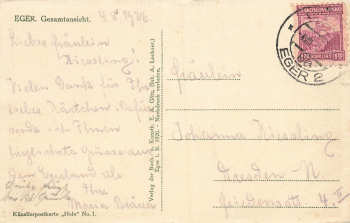 EGER. Gesamtansicht.
4.8.1926
Liebes Fräulein
Kiessling!
Vielen Dank für Ihr
liebes Kärtchen. Dafür
sende ich Ihnen
herzlichste Grüsse aus
dem Egerland als
Ihre
Maria
Künstlerpostkarte „Helo“ No. 1.
Verlag der Buch- u. Kunsth. E. A. Götz,
Eger i. B. 1926. - Nachdruck verboten.
ČESKOSLOVENSKO
EGER 2
Fräulein
Johanna Kiessling
Dresden N.
4. II